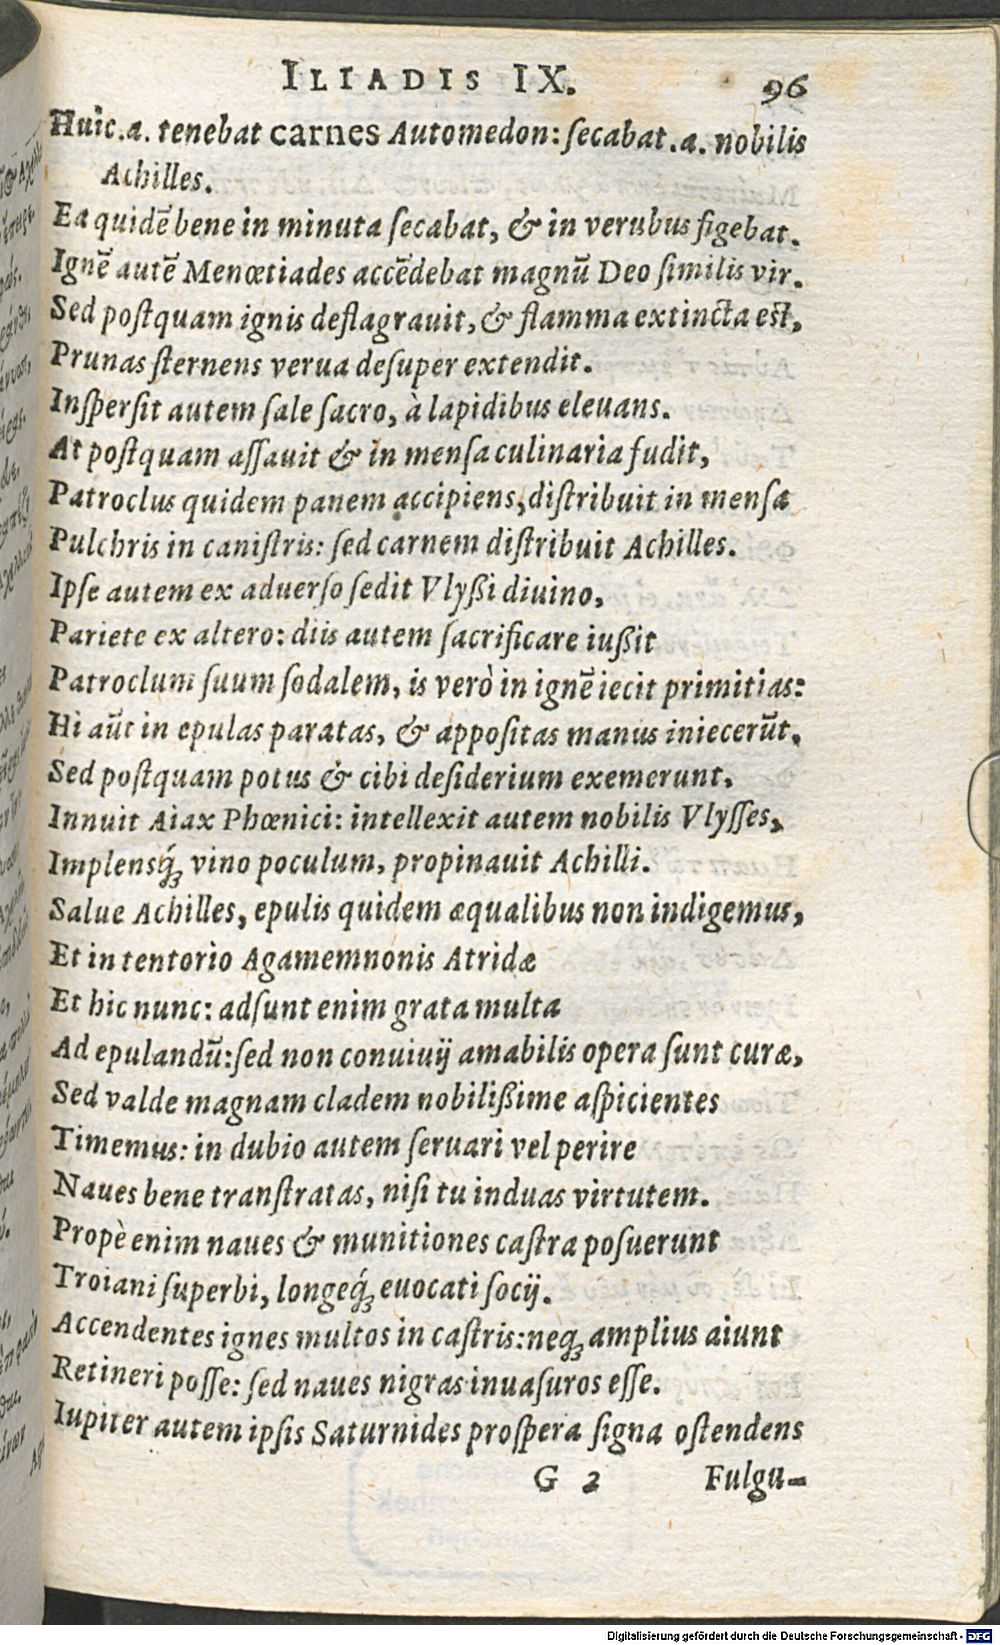 ILIADIS IX. 96
Huic .a. tenebat carnes Automedon: ſecabat .a. nobilis
Achilles.
Ea quidē bene in minuta ſecabat, & in verubus figebat.
Ignē autē Menœtiades accēdebat magnū Deo ſimilis vir.
Sed poſtquam ignis deflagrauit, & flamma extincta eſt,
Prunas ſternens verua deſuper extendit.
Inſperſit autem ſale ſacro, à lapidibus eleuans.
At poſtquam aſſauit & in menſa culinaria fudit,
Patroclus quidem panem accipiens, diſtribuit in menſa
Pulchris in caniſtris: ſed carnem diſtribuit Achilles.
Ipſe autem ex aduerſo ſedit Vlyßi diuino,
Pariete ex altero: diis autem ſacrificare iußit
Patroclum ſuum ſodalem, is verò in ignē iecit primitias:
Hi aūt in epulas paratas, & appoſitas manus iniecerūt.
Sed poſtquam potus & cibi deſiderium exemerunt,
Innuit Aiax Phœnici: intellexit autem nobilis Vlyſſes,
Implensq́; vino poculum, propinauit Achilli.
Salue Achilles, epulis quidem æqualibus non indigemus,
Et in tentorio Agamemnonis Atridæ
Et hic nunc: adſunt enim grata multa
Ad epulandū: ſed non conuiuij amabilis opera ſunt curæ,
Sed valde magnam cladem nobilißime aſpicientes
Timemus: in dubio autem ſeruari vel perire
Naues bene tranſtratas, niſi tu induas virtutem.
Propè enim naues & munitiones caſtra poſuerunt
Troiani ſuperbi, longeq́; euocati ſocij.
Accendentes ignes multos in caſtris: neq; amplius aiunt
Retineri poſſe: ſed naues nigras inuaſuros eſſe.
Iupiter autem ipſis Saturnides proſpera ſigna oſtendens
G 2 Fulgu-
Digitalisierung gefördert durch die Deutsche Forschungsgemeinschaft - DFG